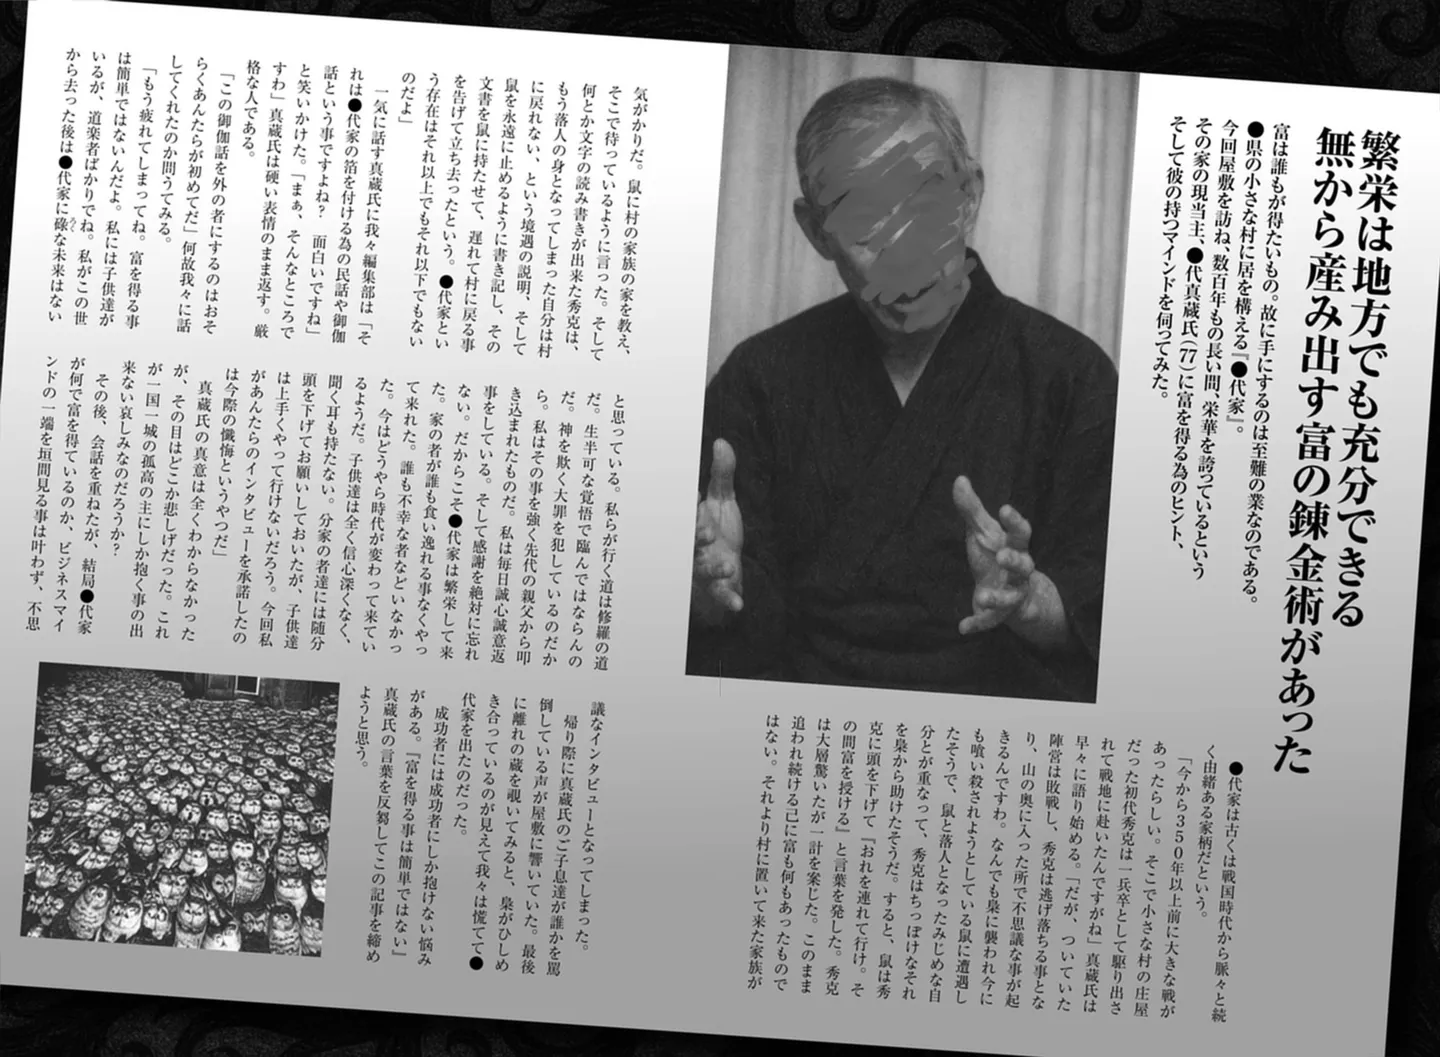 繁栄は地方でも充分できる
無から産み出す富の錬金術があった
富は誰もが得たいもの。故に手にするのは至難の業なのである。
●県の小さな村に居を構える『●代家』。
今回屋敷を訪ね、数百年もの長い間、栄華を誇っているという
その家の現当主、●代真蔵氏(77)に富を得る為のヒント、
そして彼の持つマインドを伺ってみた。
●代家は古くは戦国時代から脈々と続
く由緒ある家柄だという。
「今から350年以上前に大きな戦が
あったらしい。そこで小さな村の庄屋
だった初代秀克は一兵卒として駆り出さ
れて戦地に赴いたんですがね」真蔵氏は
早々に語り始める。「だが、ついていた
陣営は敗戦し、秀克は逃げ落ちる事とな
り、山の奥に入った所で不思議な事が起
きるんですわ。なんでも梟に襲われ今に
も喰い殺されようとしている鼠に遭遇し
たそうで、鼠と落人となったみじめな自
分とが重なって、秀克はちっぽけなそれ
を梟から助けたそうだ。すると、鼠は秀
克に頭を下げて『おれを連れて行け。そ
の間富を授ける』と言葉を発した。秀克
は大層驚いたが一計を案じた。このまま
追われ続ける己に富も何もあったもので
はない。それより村に置いて来た家族が
気がかりだ。鼠に村の家族の家を教え、
そこで待っているように言った。そして
何とか文字の読み書きが出来た秀克は、
もう落人の身となってしまった自分は村
に戻れない、という境遇の説明、そして
鼠を永遠に止めるように書き記し、その
文書を鼠に持たせて、遅れて村に戻る事
を告げて立ち去ったという。●代家とい
う存在はそれ以上でもそれ以下でもない
のだよ」
一気に話す真蔵氏に我々編集部は「そ
れは●代家の箔を付ける為の民話や御伽
話という事ですよね? 面白いですね」
と笑いかけた。「まぁ、そんなところで
すわ」真蔵氏は硬い表情のまま返す。厳
格な人である。
「この御伽話を外の者にするのはおそ
らくあんたらが初めてだ」何故我々に話
してくれたのか問うてみる。
「もう疲れてしまってね。富を得る事
は簡単ではないんだよ。私には子供達が
いるが、道楽者ばかりでね。私がこの世
から去った後は●代家に碌な未来はない
と思っている。私らが行く道は修羅の道
だ。生半可な覚悟で臨んではならんの
だ。神を欺く大罪を犯しているのだか
ら。私はその事を強く先代の親父から叩
き込まれたものだ。私は毎日誠心誠意返
事をしている。そして感謝を絶対に忘れ
ない。だからこそ●代家は繁栄して来
た。家の者が誰も食い逸れる事なくやっ
て来れた。誰も不幸な者などいなかっ
た。今はどうやら時代が変わって来てい
るようだ。子供達は全く信心深くなく、
聞く耳も持たない。分家の者達には随分
頭を下げてお願いしておいたが、子供達
は上手くやって行けないだろう。今回私
があんたらのインタビューを承諾したの
は今際の懺悔というやつだ」
真蔵氏の真意は全くわからなかった
が、その目はどこか悲しげだった。これ
が一国一城の孤高の主にしか抱く事の出
来ない哀しみなのだろうか?
その後、会話を重ねたが、結局●代家
が何で富を得ているのか、ビジネスマイ
ンドの一端を垣間見る事は叶わず、不思
議なインタビューとなってしまった。
帰り際に真蔵氏のご子息達が誰かを罵
倒している声が屋敷に響いていた。最後
に離れの蔵を覗いてみると、梟がひしめ
き合っているのが見えて我々は慌てて●
代家を出たのだった。
成功者には成功者にしか抱けない悩み
がある。『富を得る事は簡単ではない』
真蔵氏の言葉を反芻してこの記事を締め
ようと思う。